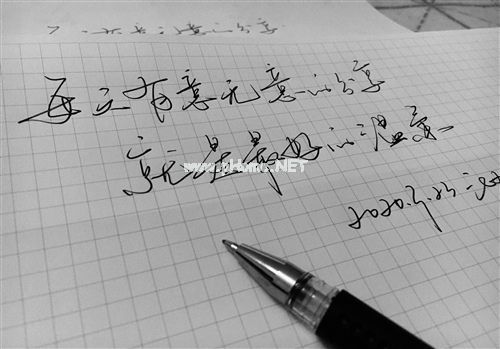 每天有意无意的分享
就是最好的温柔
www.pHome.NET
2020